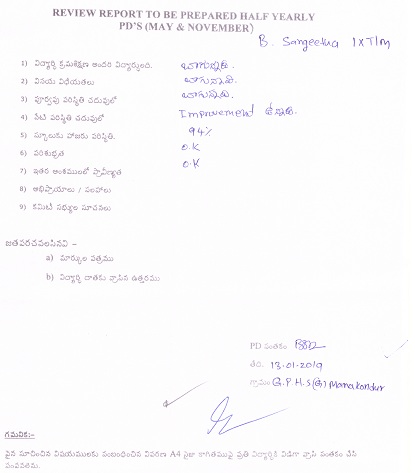 REVIEW REPORT TO BE PREPARED HALF YEARLY
PD'S (MAY & NOVEMBER)
B. Sangeetha IXT/M
1) విద్యార్థి క్రమశిక్షణ అందరి విద్యార్థులది. బాగున్నది.
2) వినయ విధేయతలు బాగున్నవి.
3) పూర్వపు పరిస్థితి చదువులో బాగున్నది.
4) నేటి పరిస్థితి చదువులో Improvement ఉన్నది.
5) స్కూలుకు హాజరు పరిస్థితి. 94%
6) పరిశుభ్రత O.K
7) ఇతర అంశములలో ప్రావీణ్యత O.K
8) అభిప్రాయాలు / సలహాలు
9) కమిటీ సభ్యుల సూచనలు
జతపరచవలసినవి :-
a) మార్కుల పత్రము
b) విద్యార్థి దాతకు వ్రాసిన ఉత్తరము
PD సంతకం
తేది. 13-01-2019
గ్రామం G.P.H.S(G) Manakondur
గమనిక:-
పైన సూచించిన విషయములకు సంబంధించిన వివరణ A4 సైజు కాగితముపై ప్రతి విద్యార్థికి విడిగా వ్రాసి సంతకం చేసి
పంపవలెను.